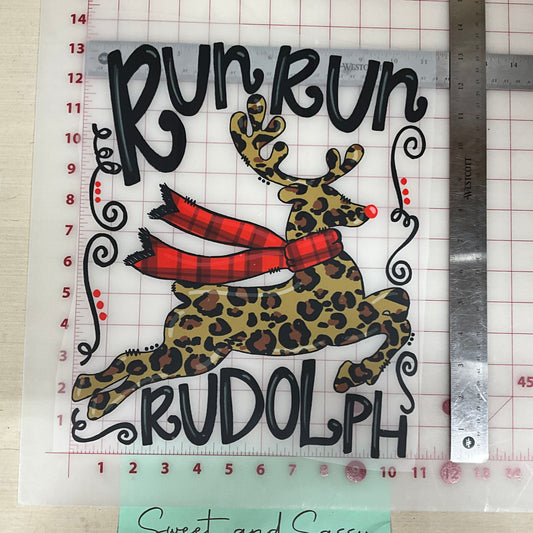 RUN RUN
RUDOLPH
WESTCOTT
WESTCOTT
14
13
12
11
10
9
8
7
6
5
4
3
2
1
1 2 3 4 5 6 7 8 9 10 11 12 13 14
45
Sweet and Sassy